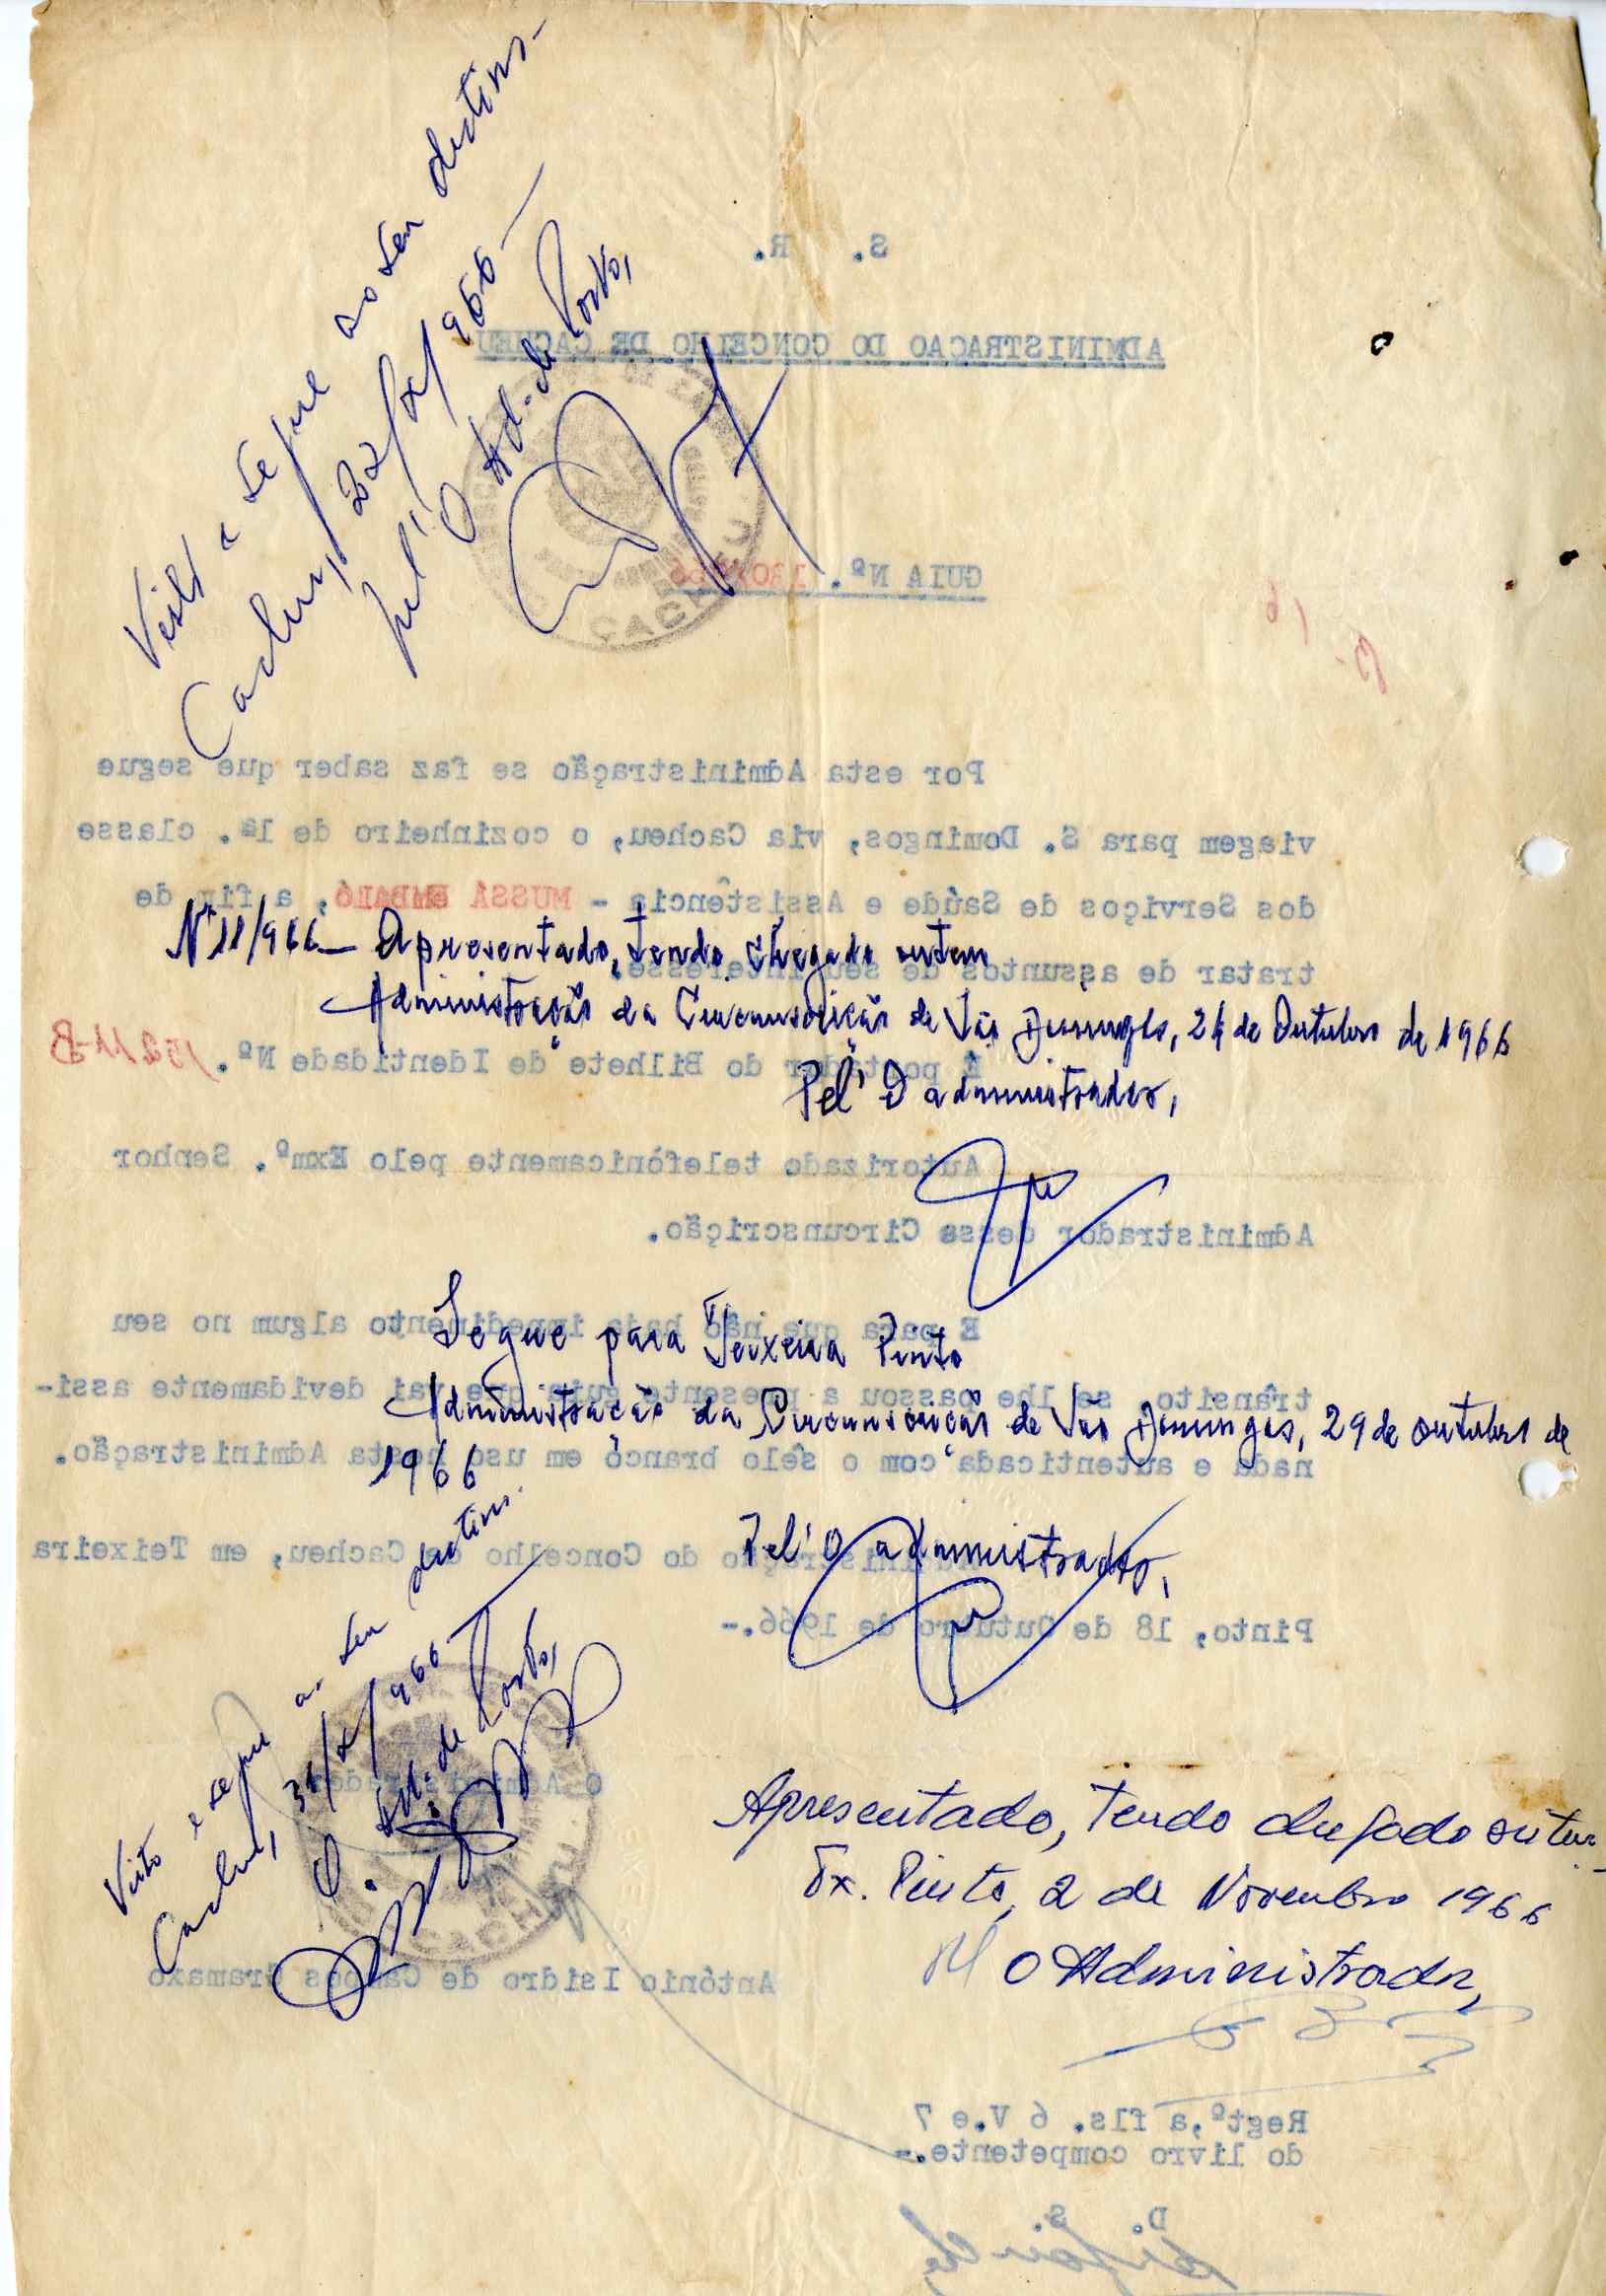 Visto e segue ao seu destino.-
Cacheu, 22/X/966-
Pel'O Ad. de Posto,
S. R.
ADMINISTRAÇAO DO CONCELHO DE CACHEU
GUIA Nº.
CACHEU
Por esta Administração se faz saber que segue
viagem para S. Domingos, via Cacheu, o cozinheiro de 1ª. classe
dos Serviços de Saúde e Assistência - MUSSÁ EMBALÓ, a fim de
tratar de assuntos de seu interesse.
Nº 11/966 - Apresentado, tendo chegado ontem
Administração da Circunscrição de São Domingos, 24 de Outubro de 1966
Pel' O administrador,
É portador do Bilhete de Identidade Nº.
Autorizado telefònicamente pelo Exmº. Senhor
Administrador dessa Circunscrição.
E para que não haja impedimento algum no seu
trânsito, se lhe passou a presente guia que vai devidamente assi-
nada e autenticada com o sêlo branco em uso nesta Administração.
Segue para Teixeira Pinto
Administração da Circunscrição de São Domingos, 29 de outubro de
1966
Pel' O administrador,
Administração do Concelho de Cacheu, em Teixeira
Pinto, 18 de Outubro de 1966.-
Visto e segue ao seu destino.
Cacheu, 31/X/966-
O Ad. de Posto,
O Administrador
CACHEU
António Isidro de Campos Gramaxo
Apresentado, tendo chegado ontem
Tx. Pinto, 2 de Novembro 1966
Pel O Administrador,
Regtº,a fls. 6 V.e 7
do livro competente.-
D. S.